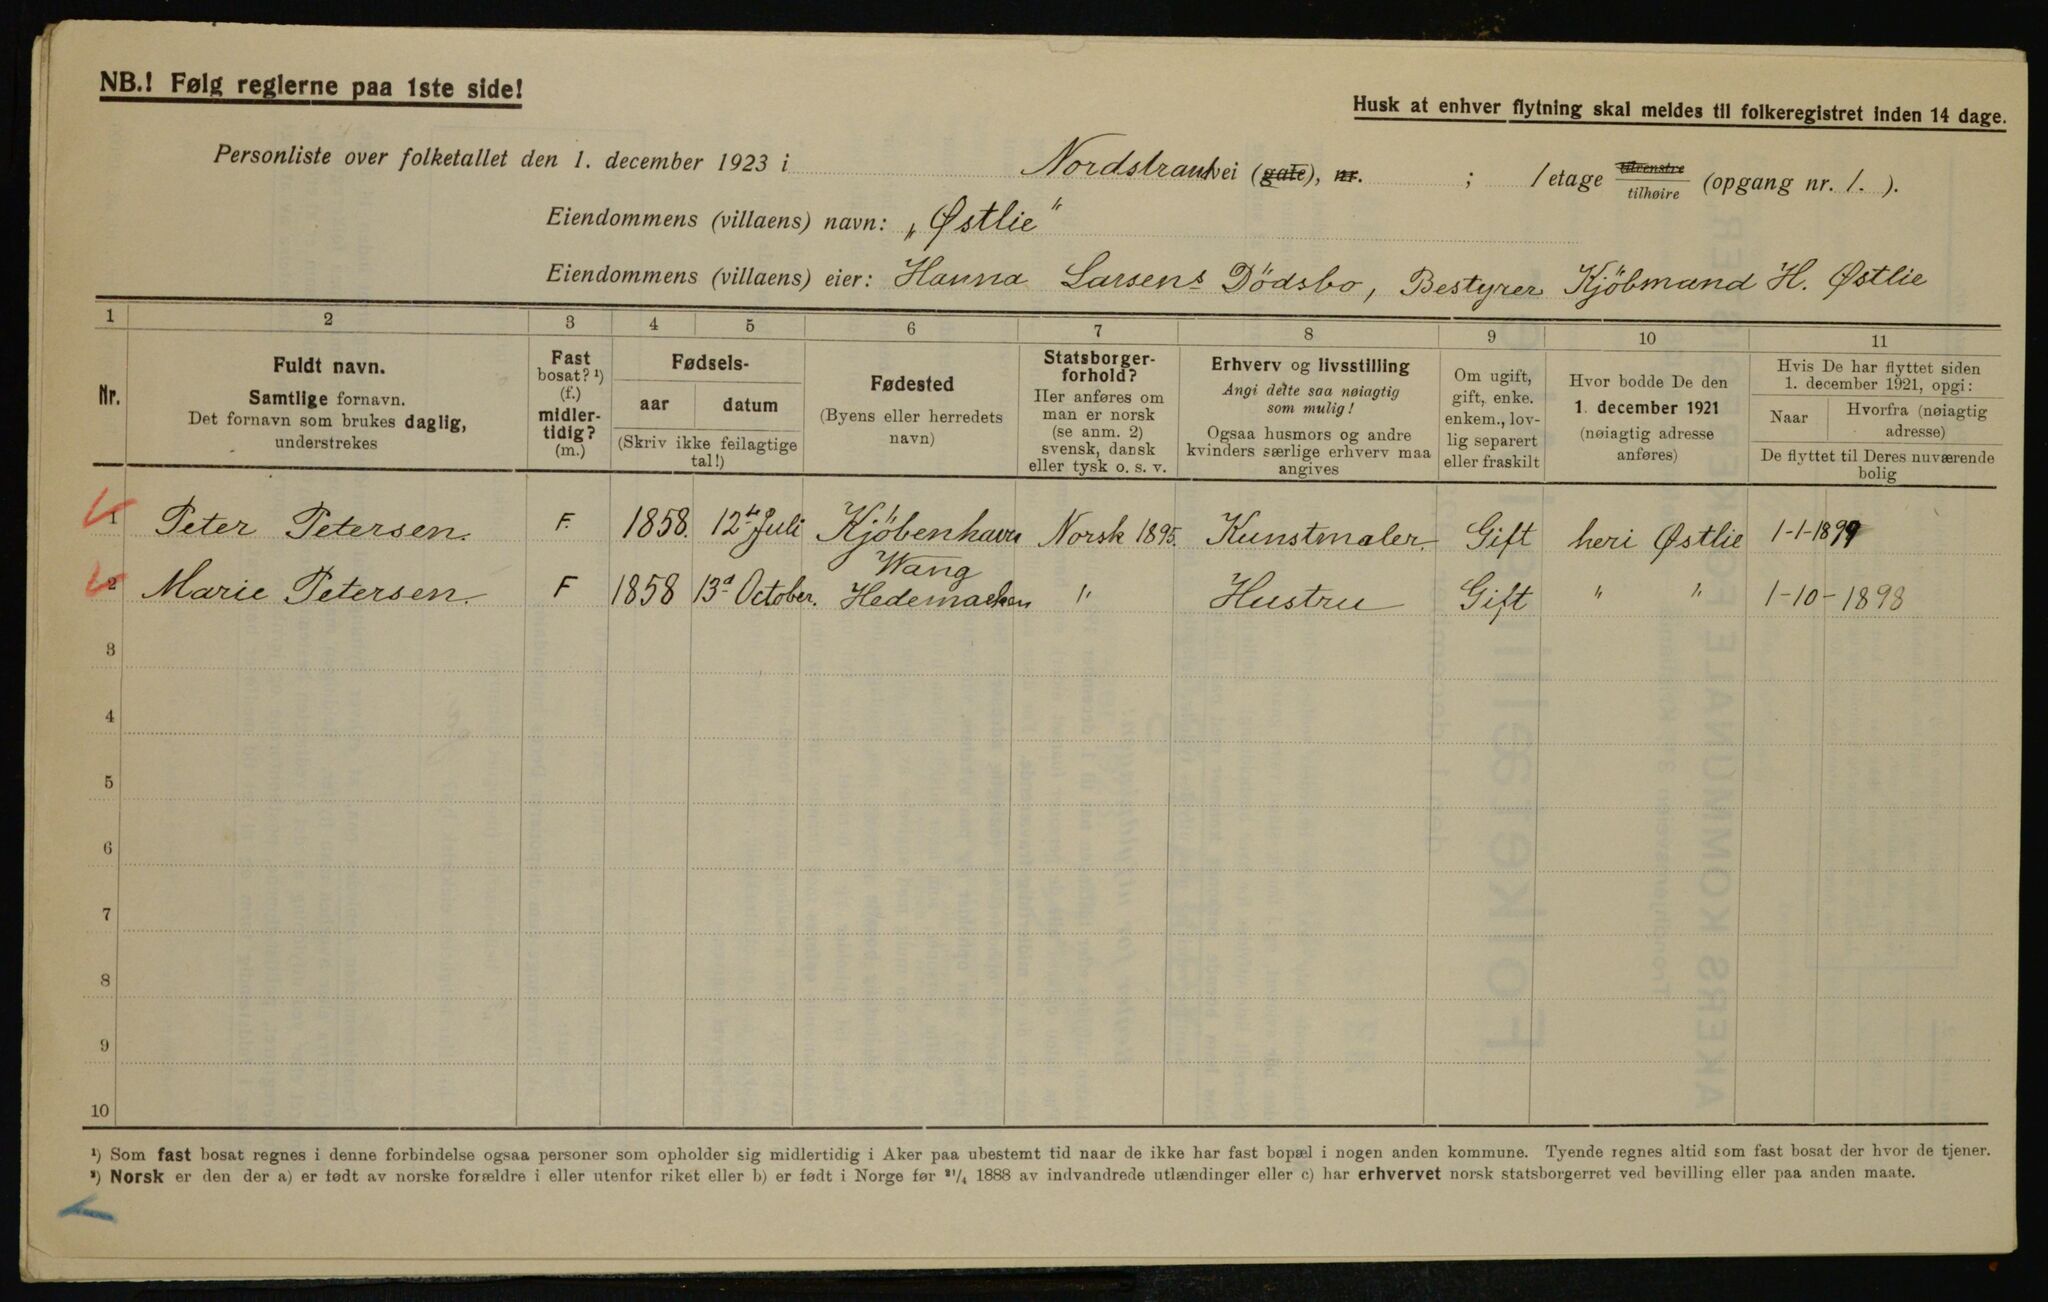 NB.! Følg reglerne paa 1ste side!
Husk at enhver flytning skal meldes til folkeregistret inden 14 dage.
Personliste over folketallet den 1. december 1923 i Nordstrand vei (gate), nr. ; 1 etage tilvenstre/tilhøire (opgang nr. 1. ).
Eiendommens (villaens) navn: „Østlie"
Eiendommens (villaens) eier: Hanna Larsens Dödsbo, Bestyrer Kjöbmand H. Østlie
1 2 3 4 5 6 7 8 9 10 11
Nr.
Fuldt navn.
Samtlige fornavn.
Det fornavn som brukes daglig,
understrekes
Fast
bosat? ¹)
(f.)
midler-
tidig?
(m.)
Fødsels-
aar datum
(Skriv ikke feilagtige
tal!)
Fødested
(Byens eller herredets
navn)
Statsborger-
forhold?
Her anføres om
man er norsk
(se anm. 2)
svensk, dansk
eller tysk o. s. v.
Erhverv og livsstilling
Angi dette saa nøiagtig
som mulig!
Ogsaa husmors og andre
kvinders særlige erhverv maa
angives
Om ugift,
gift, enke.
enkem., lov-
lig separert
eller fraskilt
Hvor bodde De den
1. december 1921
(nøiagtig adresse
anføres)
Hvis De har flyttet siden
1. december 1921, opgi:
Naar Hvorfra (nøiagtig
adresse)
De flyttet til Deres nuværende
bolig
1 Peter Petersen. F. 1858. 12te Juli Kjöbenhavn Norsk 1895. Kunstmaler. Gift heri Østlie 1-1-1899
Wang
2 Marie Petersen. F 1858 13d October. Hedemarken " Hustru Gift " " 1-10-1898
3
4
5
6
7
8
9
10
¹) Som fast bosat regnes i denne forbindelse ogsaa personer som opholder sig midlertidig i Aker paa ubestemt tid naar de ikke har fast bopæl i nogen anden kommune. Tyende regnes altid som fast bosat der hvor de tjener.
²) Norsk er den der a) er født av norske forældre i eller utenfor riket eller b) er født i Norge før ²¹/₄ 1888 av indvandrede utlændinger eller c) har erhvervet norsk statsborgerret ved bevilling eller paa anden maate.